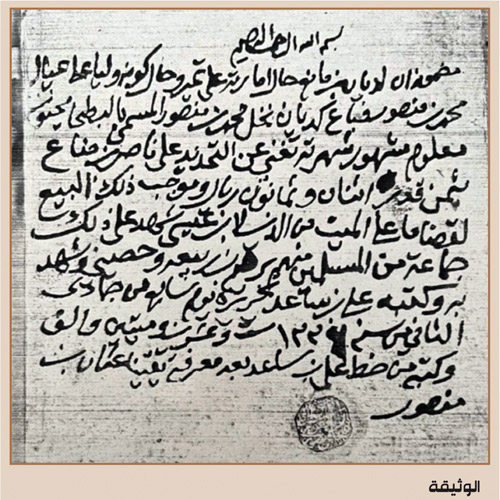 بسم الله الرحمن الرحيم
مضمونه ان لديان بن مانع حال امارته على عمر وحال كونه وليا على عيال
محمد بن منصور فباع لديان نخل محمد بن منصور المسمى بالبطحى الجنوبي
معلوم مشهور شهرته تغني عن التحديد على ناصر بن مناع
بثمن قدره اثنان وثمانون ريال وموجب ذلك البيع
لقضا ما على الميت من الدين لابن عيسى شهد على ذلك
جماعة من المسلمين منهم بن ربيعه وحصيني وشهد
به وكتبه علي بن ساعد تحريره يوم سابع من جمادى
الثاني من سنه ١٢٢٦ ست وعشرين وميتين والف
وكتبه من خط علي بن ساعد بعد معرفته يقينا عثمان بن
منصور
الوثيقة